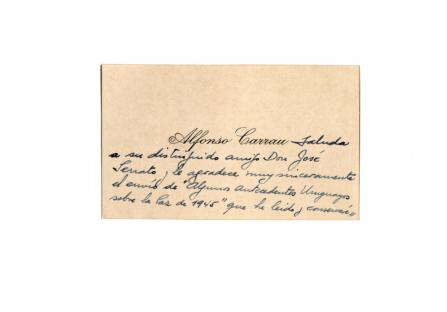 Alfonso Carrau saluda
a su distinguido amigo Don José
Serrato y le agradece muy sinceramente
el envío de "Algunos Antecedentes Uruguayos
sobre la Paz de 1945" que ha leído y